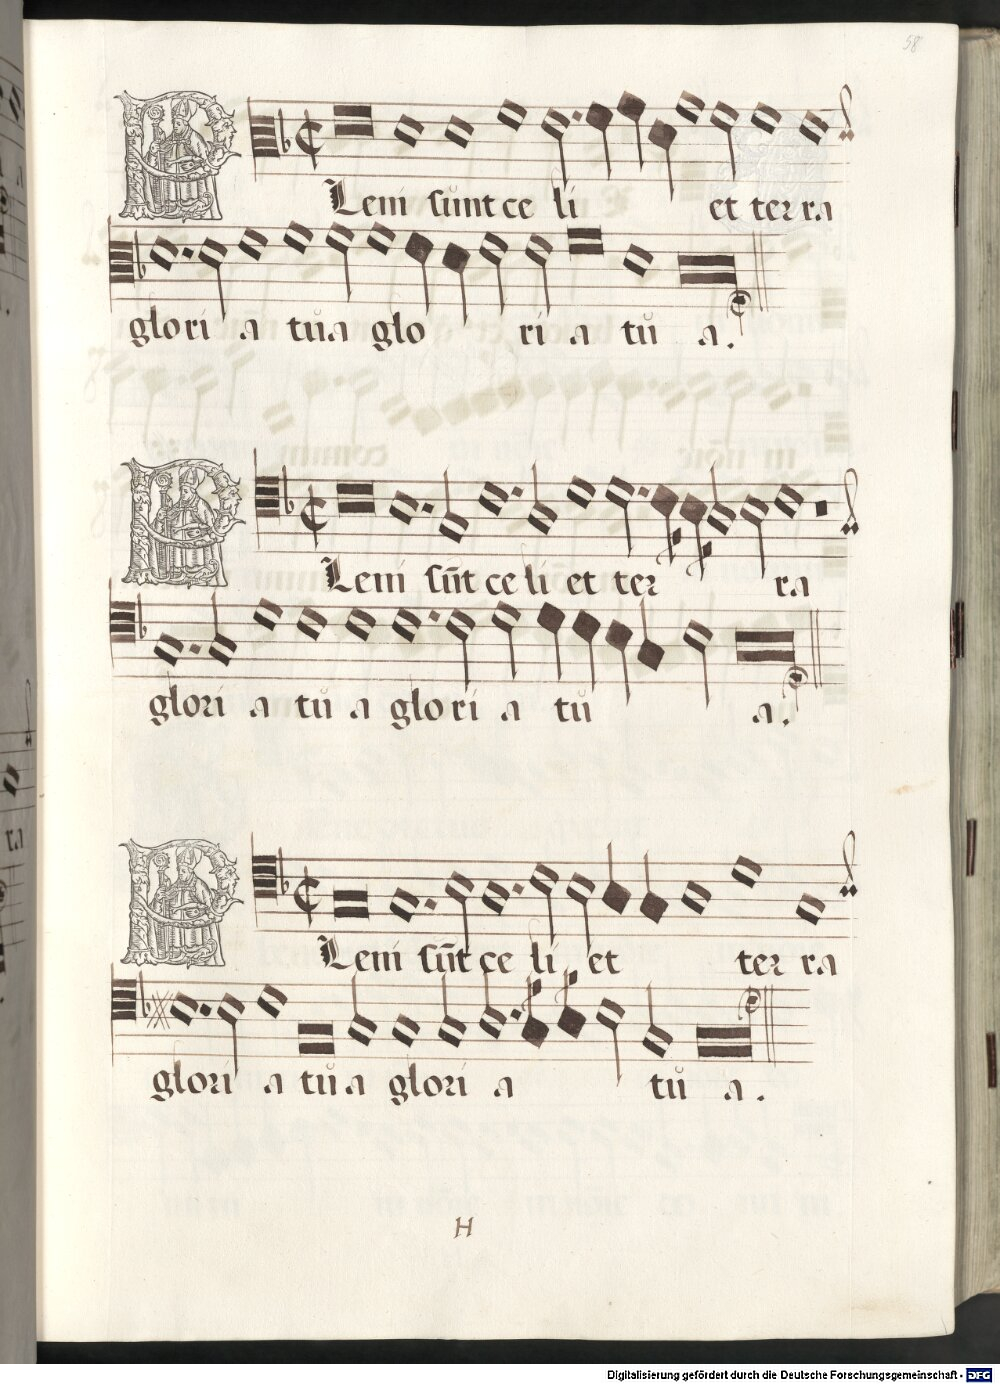 58
PLeni sunt ce li et ter ra
glo ri a tu a glo ri a tu a.
PLeni sūt ce li et ter ra
glori a tu a glo ri a tu a.
PLeni sūt ce li et ter ra
glori a tu a glori a tu a.
H
Digitalisierung gefördert durch die Deutsche Forschungsgemeinschaft - DFG